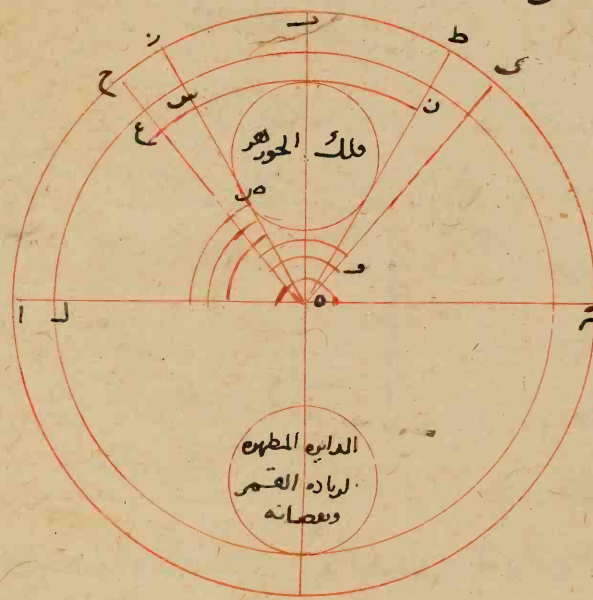 ر
ز
ط
ى
ح
س
ع
ن
فلك الجوزهر
ص
و
ه
ا
ل
الدايره المظهره
لزياده القمر
ونقصانه